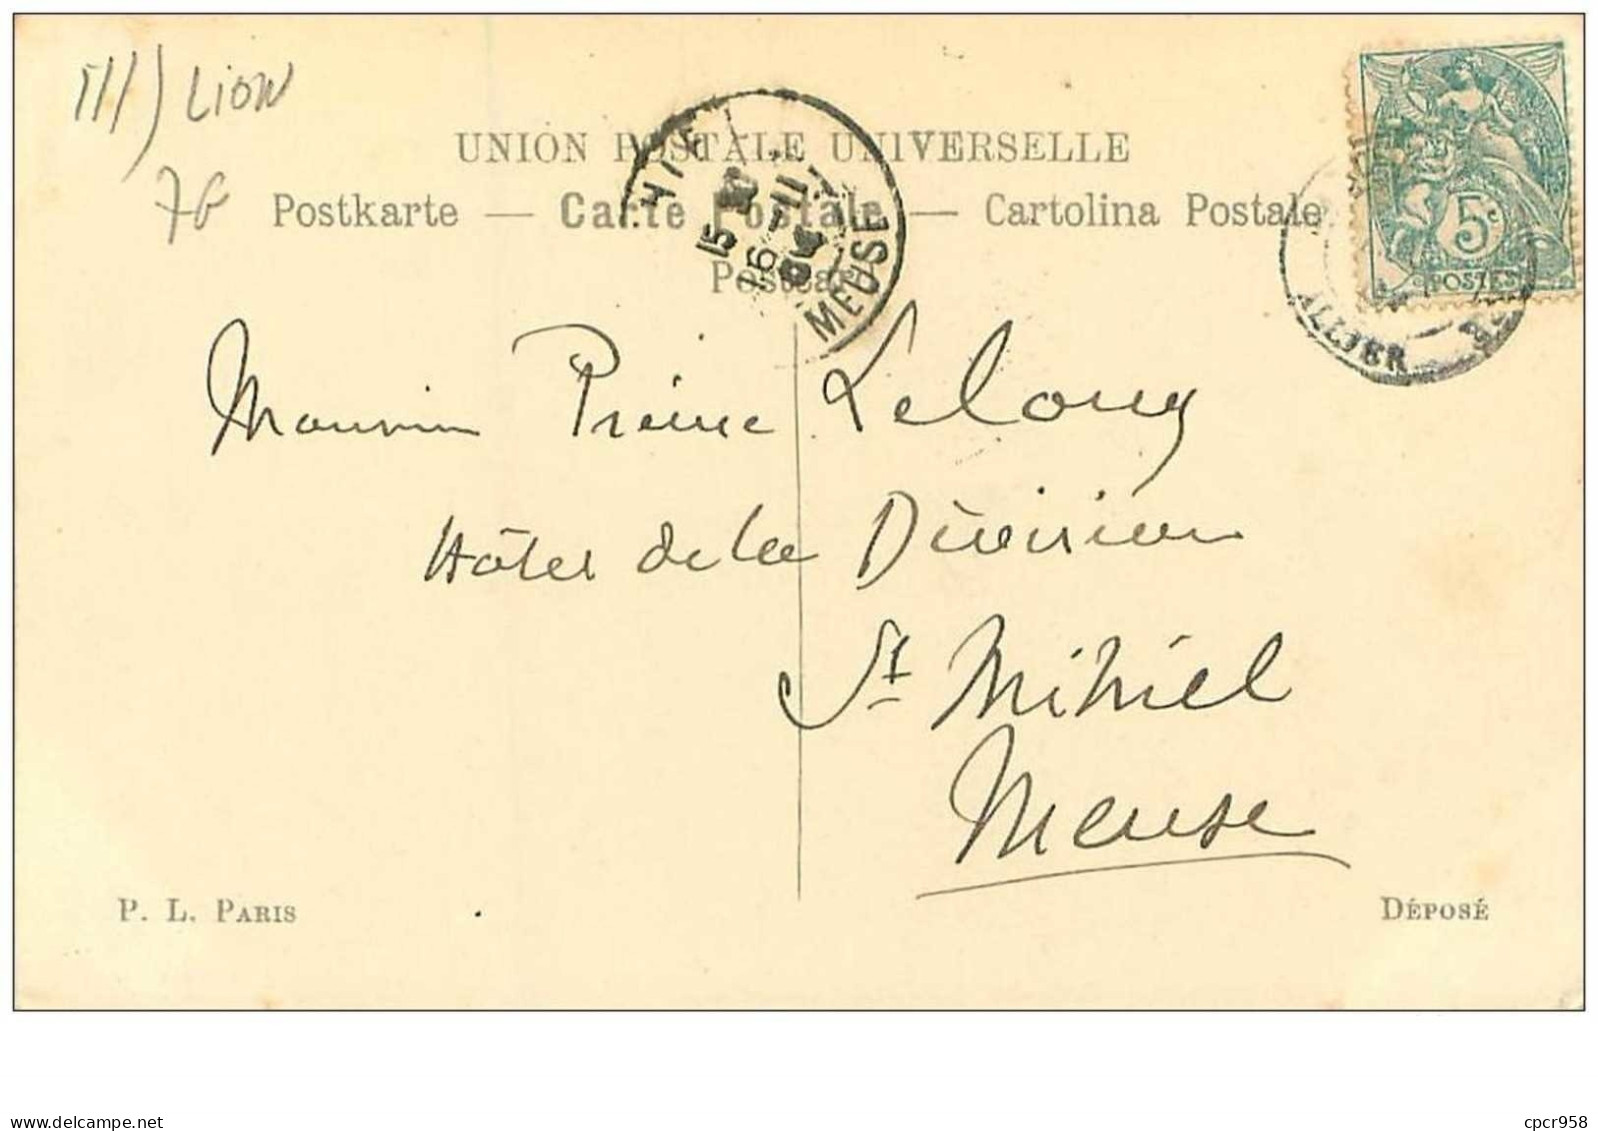 III) LION
76
UNION POSTALE UNIVERSELLE
Postkarte — Carte Postale — Cartolina Postale
Postcard
5c
POSTES
15
6 - 11
MEUSE
ALLIER
Monsieur Pierre Lelong
Hôtel de la Division
St Mihiel
Meuse
P. L. PARIS
DÉPOSÉ
www.delcampe.net
cpcr958